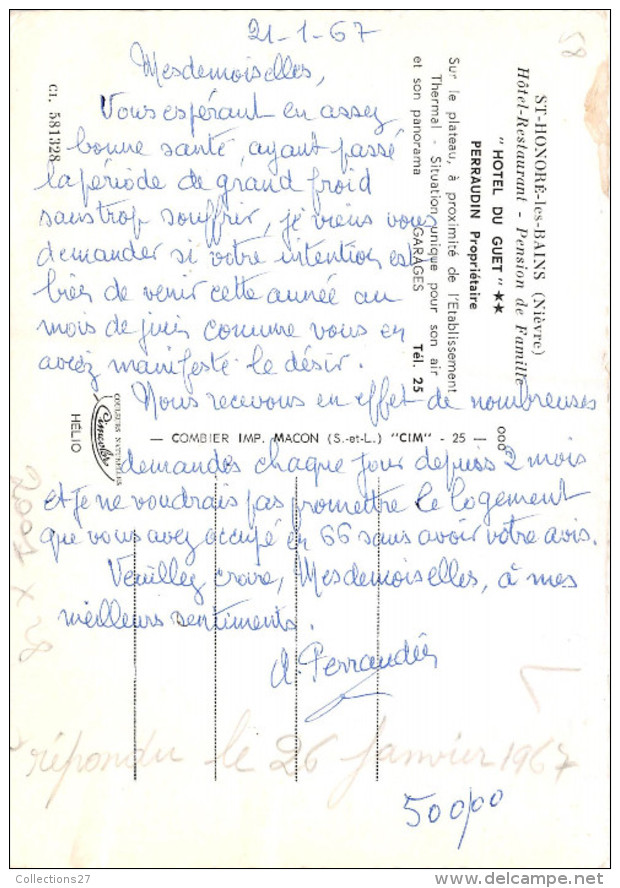 21-1-67
Mesdemoiselles,
Vous espérant en assez
bonne santé, ayant passé
la période de grand froid
sans trop souffrir, je viens vous
demander si votre intention est
bien de venir cette année au
mois de juin comme vous en
aviez manifesté le désir.
Nous recevons en effet de nombreuses
demandes chaque jour depuis 2 mois
et je ne voudrais pas promettre le logement
que vous avez occupé en 66 sans avoir votre avis.
Veuillez croire, Mesdemoiselles, à mes
meilleurs sentiments.
A. Perraudin
répondu le 26 janvier 1967
500/00
58
ST-HONORÉ-les-BAINS (Nièvre)
Hôtel-Restaurant - Pension de Famille
"HOTEL DU GUET" ★★
PERRAUDIN Propriétaire
Sur le plateau, à proximité de l'Etablissement
Thermal - Situation unique pour son air
et son panorama
GARAGES
Tél. 25
Cl. 581328
COMBIER IMP. MACON (S.-et-L.) "CIM" - 25 -
000
COULEURS NATURELLES
Cimcolor
HELIO
Collections27
www.delcampe.net